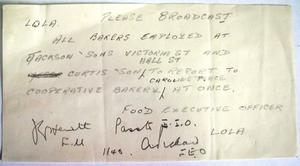 PLEASE BROADCAST
LOLA.
ALL BAKERS EMPLOYED AT
JACKSON & SONS VICTORIA ST AND
HALL ST
CURTIS & SON TO REPORT TO
CAROLINE PLACE
COOPERATIVE BAKERY AT ONCE.
FOOD EXECUTIVE OFFICER
LOLA
E.M
1145.